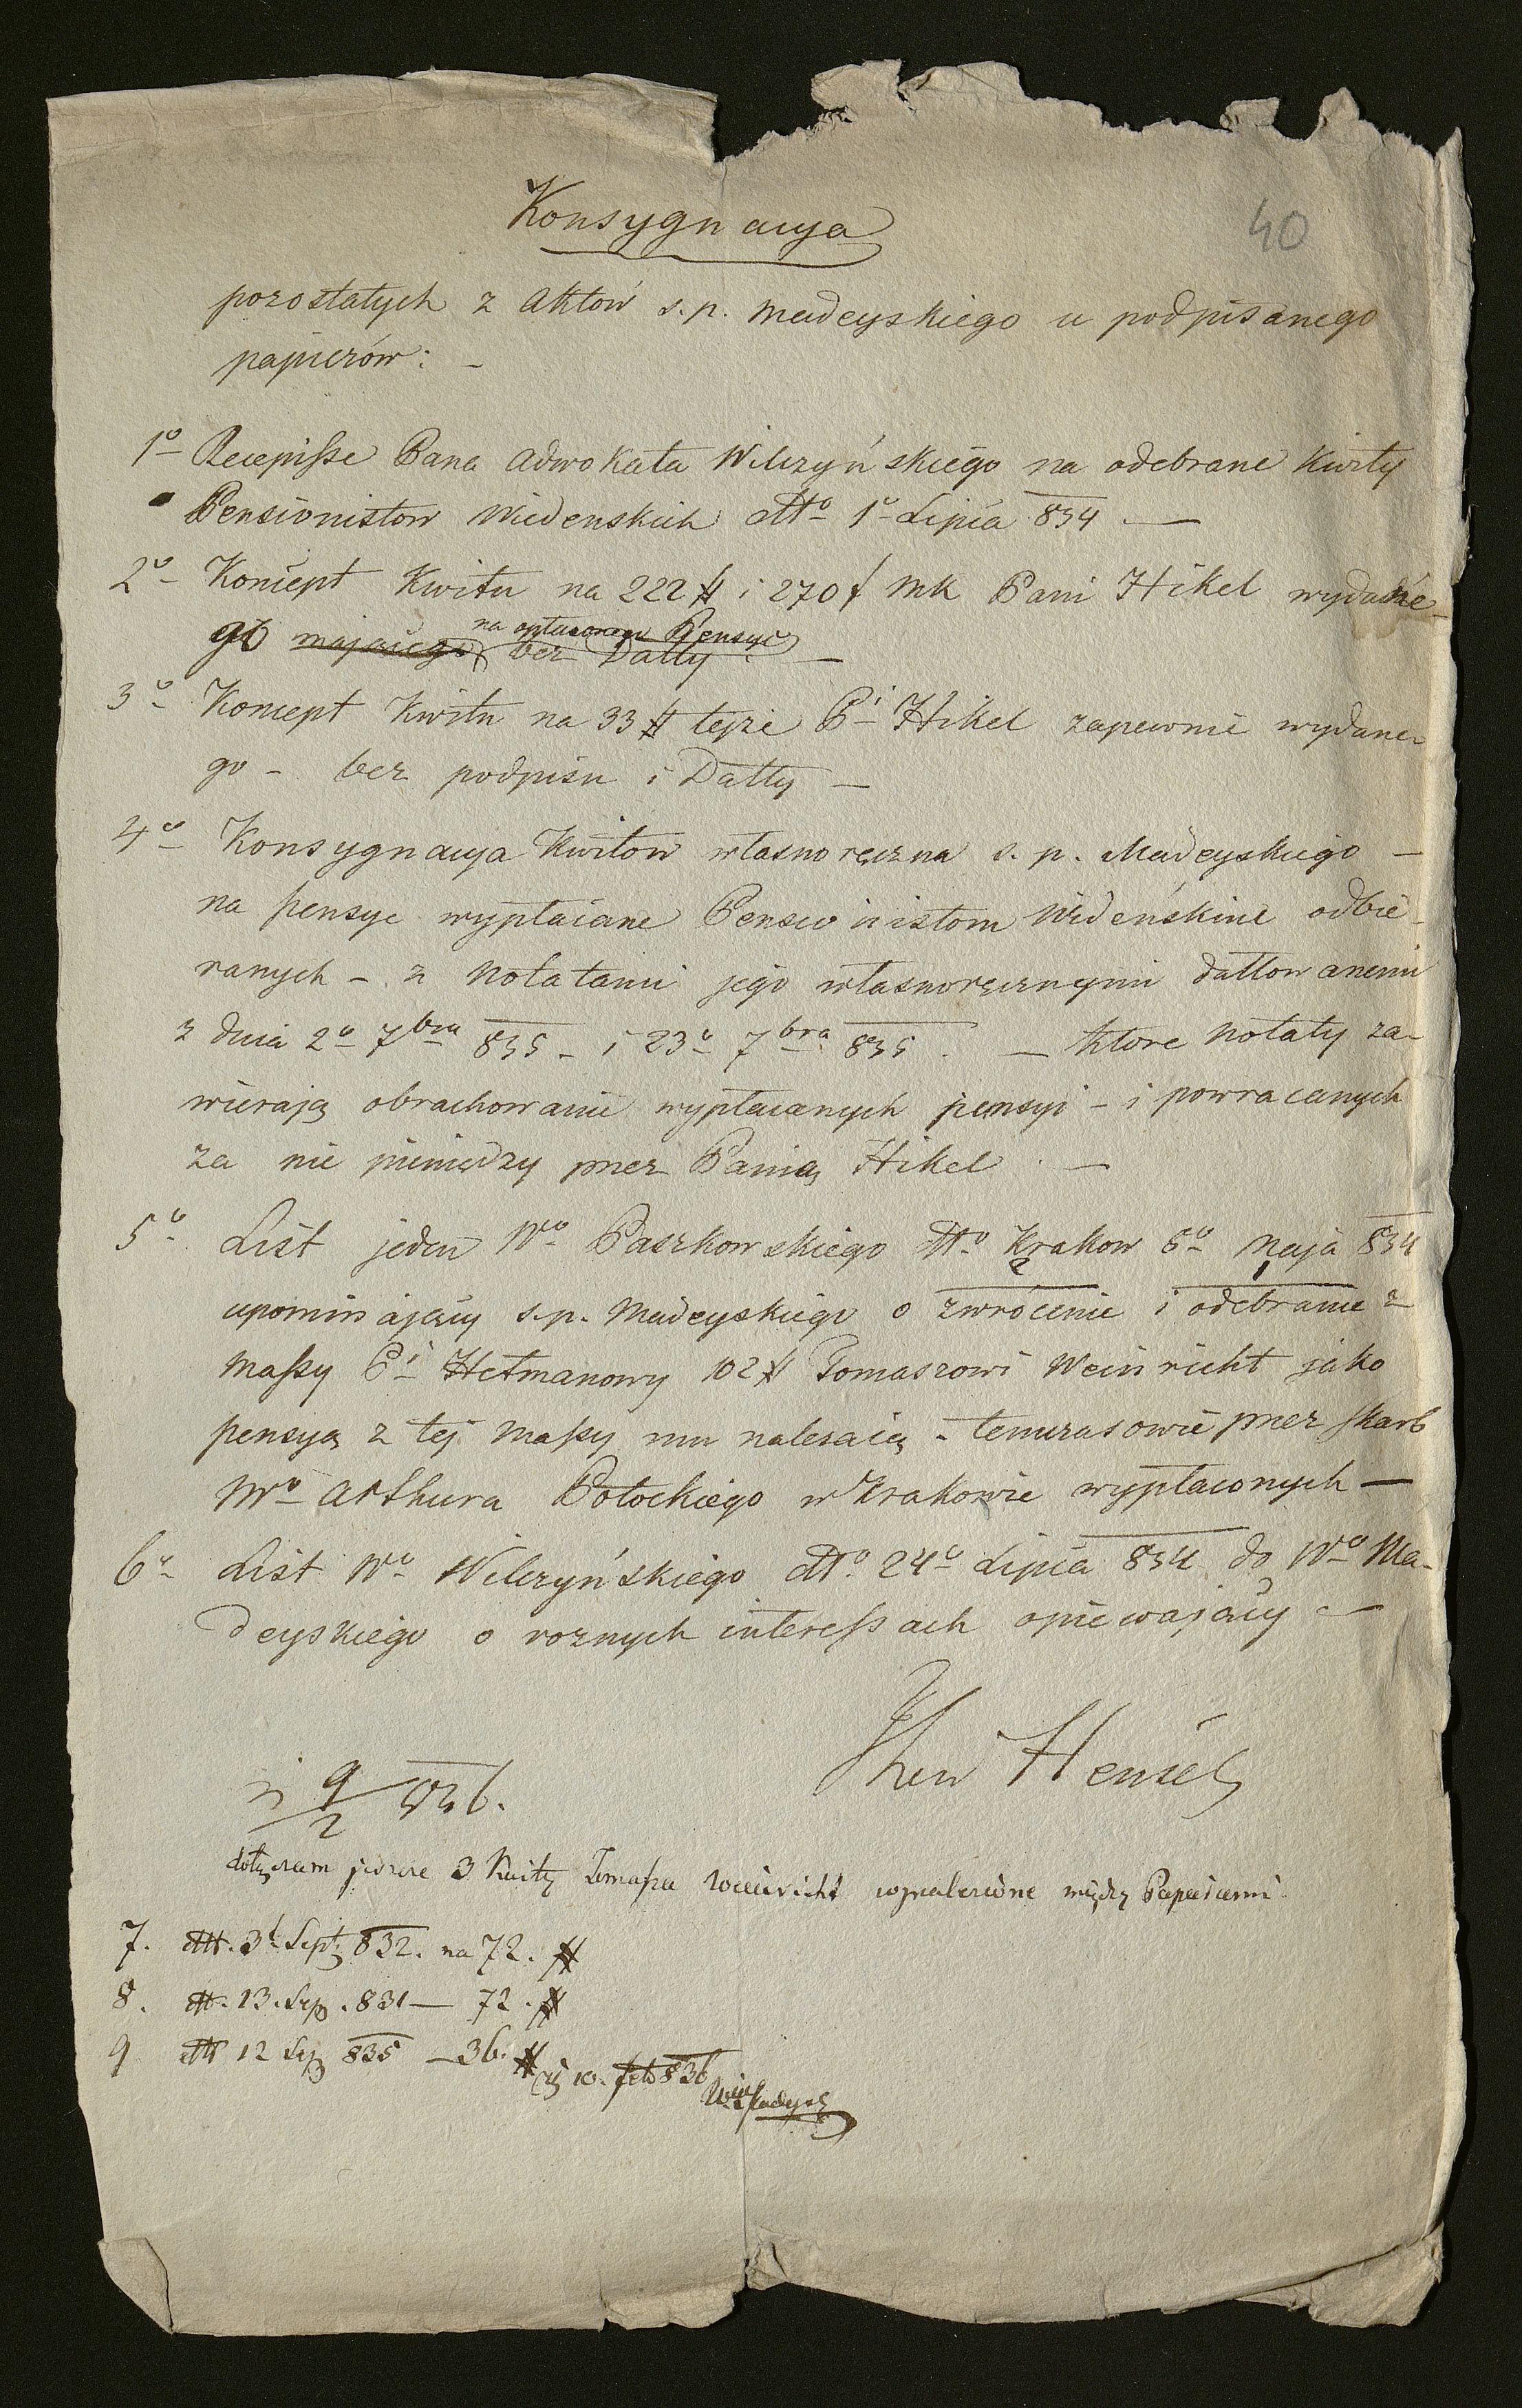 40
Konsygnacya
pozostałych z aktów s. p. Madeyskiego u podpisanego
papierów: -
1o Recepisse Pana Adwokata Wilczyńskiego na odebrane kwity
Pensionistow Wiedenskich dtto 1o Lipca 834 —
2o Koncept Kwitu na 222 # i 270 f mk Pani Hikel wydane-
na opłacone Pensye
go mającego bez Datty . —
3o Koncept Kwitu na 33 # tejże Pi Hikel zapewnie wydane-
go - bez podpisu i Datty —
4o Konsygnacya Kwitow własnoręczna s. p. Madeyskiego —
na pensye wypłacane Pensionistom Wideńskim odbie-
ranych - z notatami jego własnoręcznymi dattowanemi
z dnia 2o 7bra 835 - i 23o 7bra 835 . — ktore notaty za-
wierają obrachowanie wypłacanych pensyi - i powracanych
za nie pieniędzy przez Panią Hikel . —
5o List jeden Wo Paszkowskiego dtto Krakow 8o Maja 834
upominający s. p. Madeyskiego o zwrócenie i odebranie z
Massy Pi Hetmanowy 102 # Tomaszowi Weinricht jako
pensyą z tej Massy mu należącą - temczasowie przez skarb
Wo Arthura Potockiego w Krakowie wypłaconych —
6o List Wo Wilczyńskiego dtto 24o Lipca 834 do Wo Ma-
deyskiego o roznych interessach opiewający —
Hensel
9/2 836.
dołączam jeszcze 3 Kwity Tomasza Weinricht wynalezione między Papierami
7. dtt. 3t Sept 832. na 72. #
8. dtt. 13. Sep. 831 — 72. #
9 dtt 12 Sep 835 — 36. #
10. feb 836